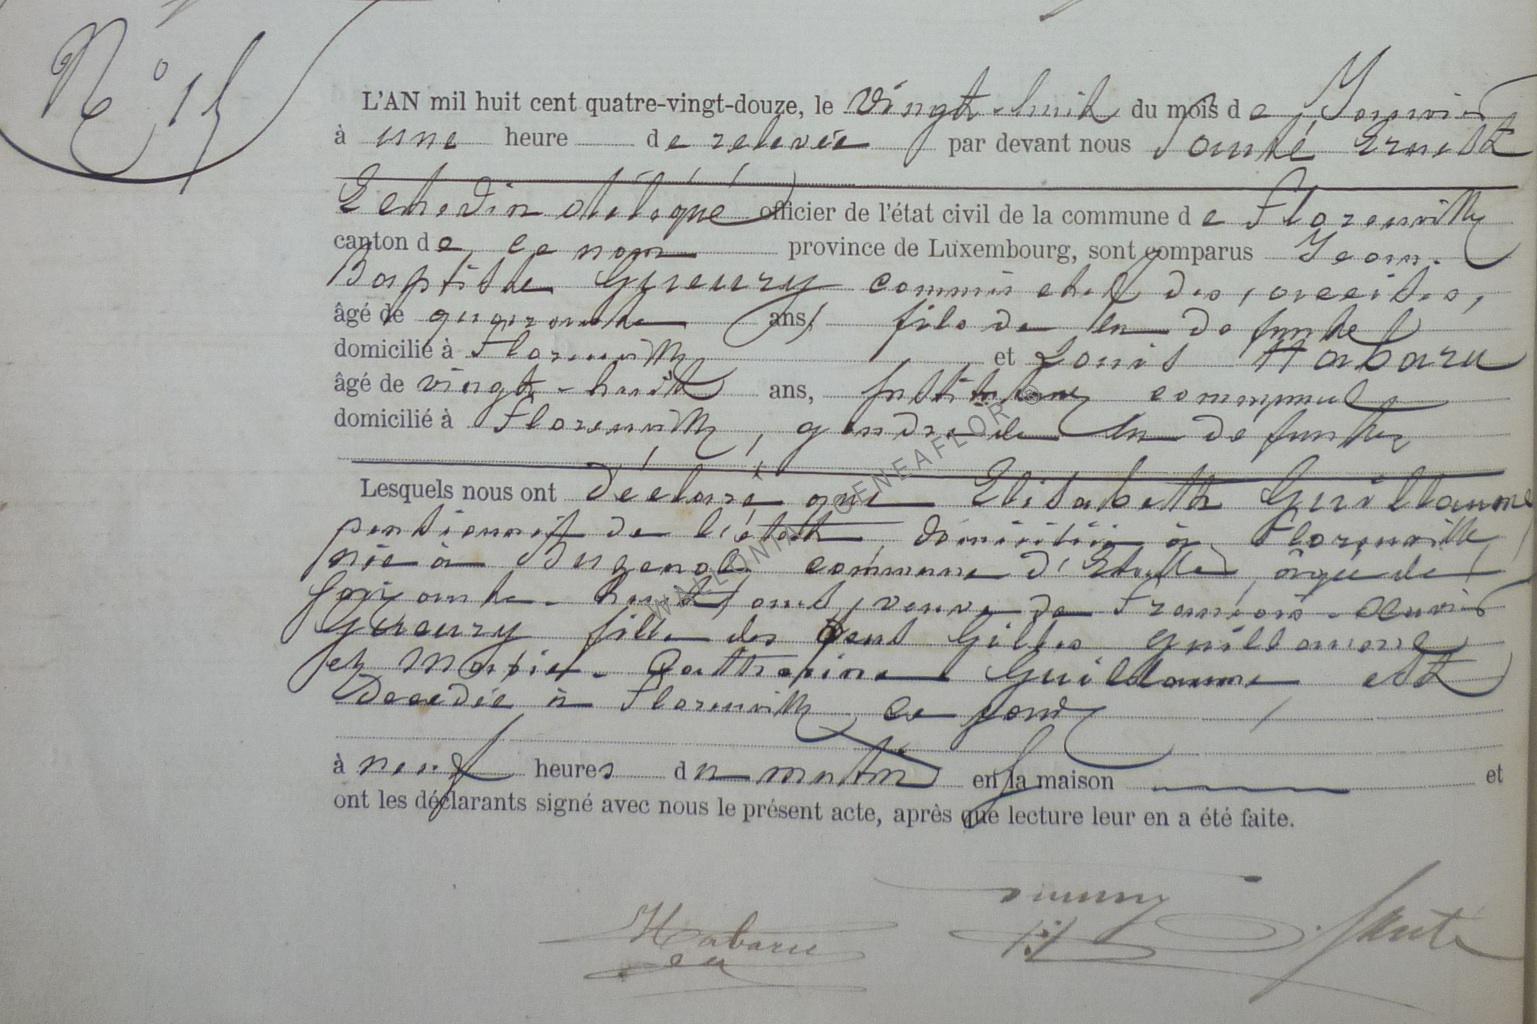 N° 15
L'AN mil huit cent quatre-vingt-douze, le vingt-huit du mois de Janvier
à une heure de relevée par devant nous Santé Ernest
Echevin délégué officier de l'état civil de la commune de Florenville
canton de ce nom province de Luxembourg, sont comparus Jean-
Baptiste commis chef des accises,
âgé de quarante ans, fils de la défunte
domicilié à Florenville et Louis Habaru
âgé de vingt-huit ans, Instituteur communal
domicilié à Florenville, gendre de la défunte
Lesquels nous ont déclaré que Elisabeth Guillaume
pensionnée de l'état, domiciliée à Florenville,
née à commune d'Ethe, âgée de
soixante-huit ans, veuve de François-
fille des Gilles Guillaume
et Marie-Catherine Guillaume est
Décédée à Florenville ce jour
à neuf heures du matin en sa maison et
ont les déclarants signé avec nous le présent acte, après que lecture leur en a été faite.
WALLONIA GENEAFLOR ©
Habaru Santé